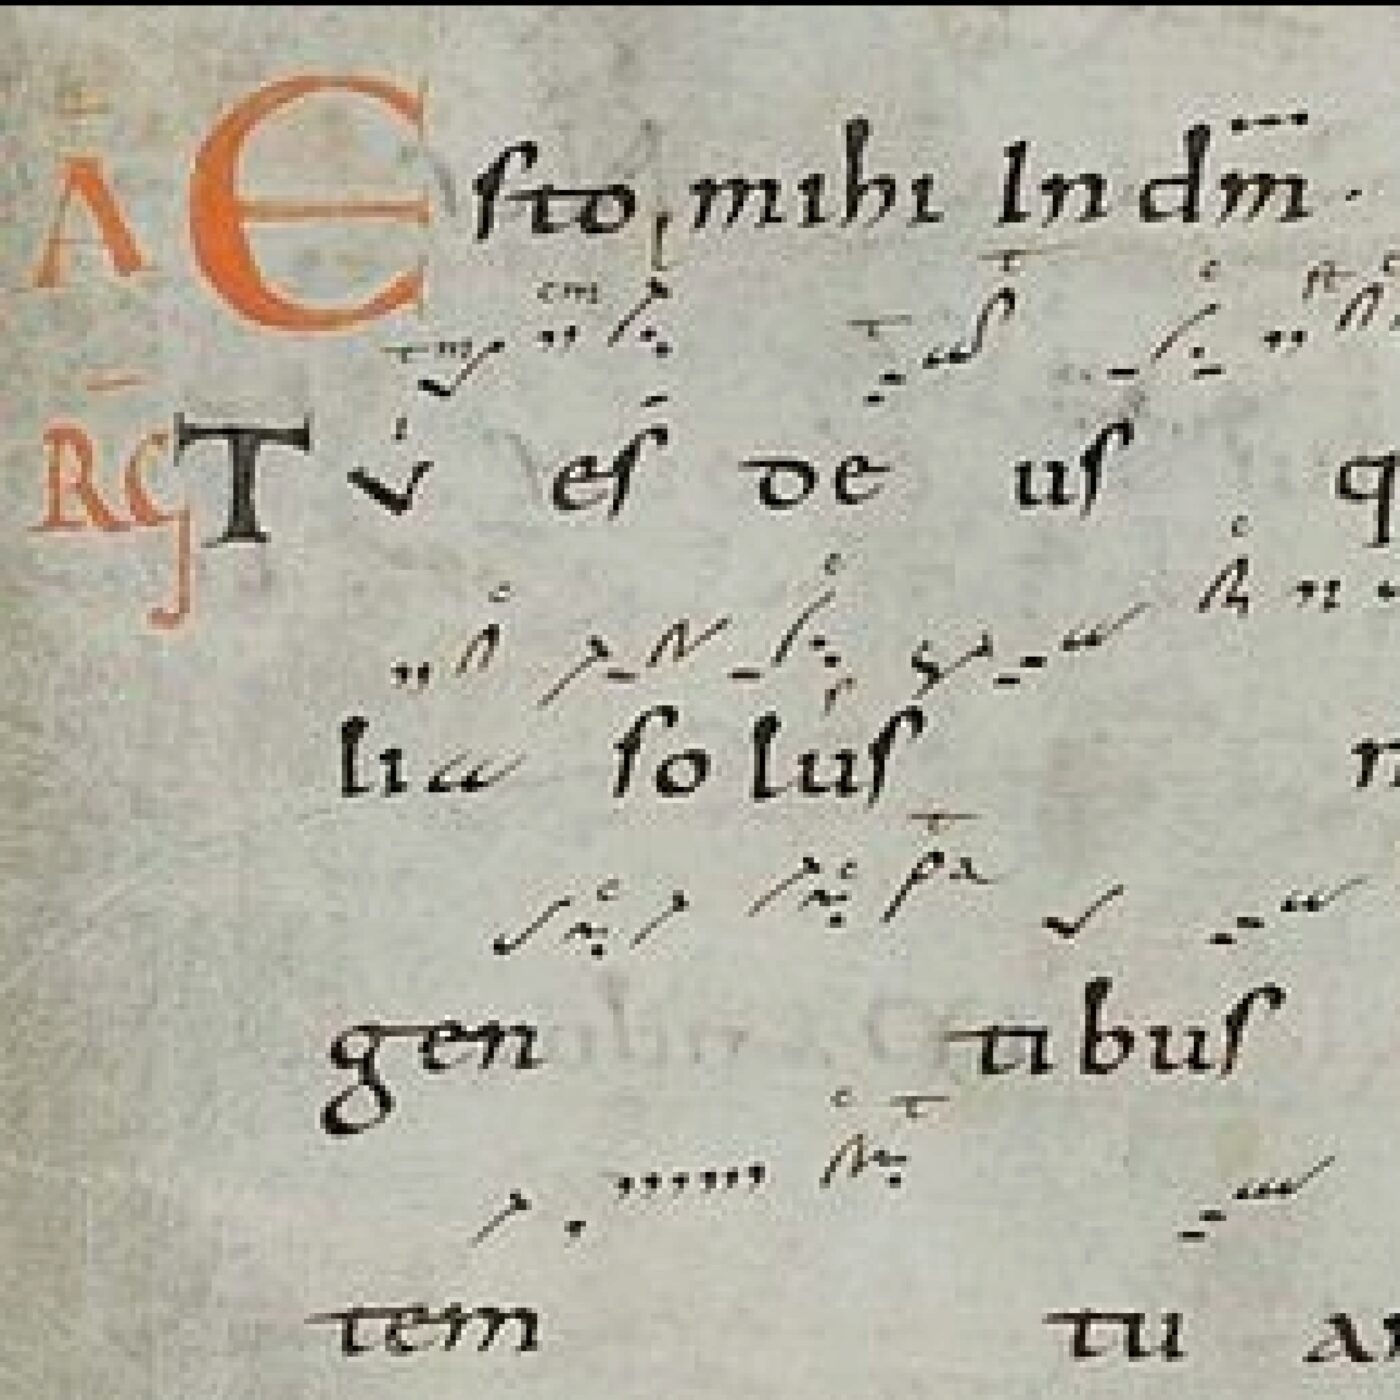 A Esto mihi In dm̄.
RG Tu es de us q
li a so lus
gen tibus
tem tu